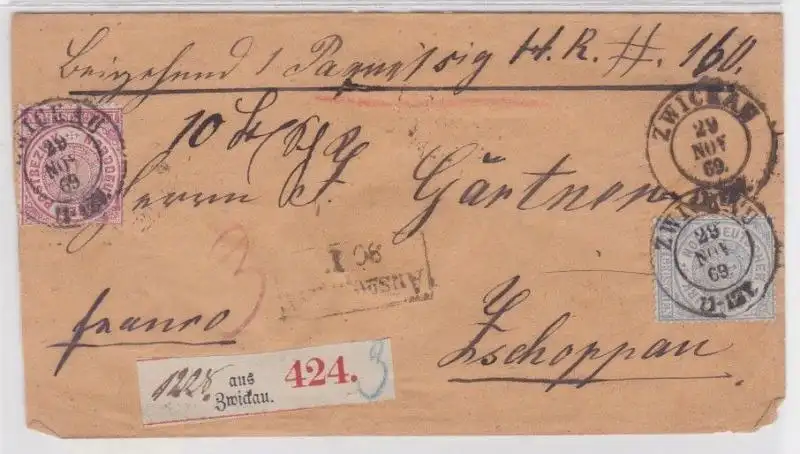 Beigehend 1 Paquet sig H. R. #. 160.
10
Herrn F. Gärtner
Zschoppau
franco
3
ZWICKAU
29
NOV
69.
ZWICKAU
29
NOV
69
11-12U
ZWICKAU
29
NOV
69
NORDD.
POSTBEZIRK
1228. aus
Zwickau.
424.
3